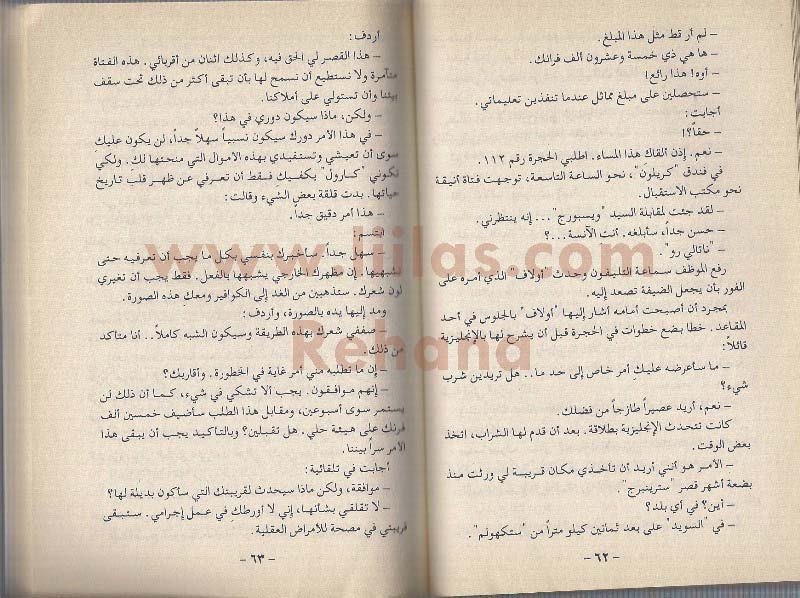 – لم أر قط مثل هذا المبلغ.
– ها هي ذي خمسة وعشرون ألف فرانك.
– أوه! هذا رائع!
– ستحصلين على مبلغ مماثل عندما تنفذين تعليماتي.
أجابت:
– حقاً؟!
– نعم. إذن ألقاك هذا المساء. اطلبي الحجرة رقم ١١٢
في فندق "كريلون"، نحو الساعة التاسعة، توجهت فتاة أنيقة
نحو مكتب الاستقبال.
– لقد جئت لمقابلة السيد "ويسبورج"... إنه ينتظرني.
– حسن جداً، سأبلغه. أنت الآنسة...؟
– "ناتالي رو".
رفع الموظف سماعة التليفون وحدث "أولاف" الذي أمره على
الفور بأن يجعل الضيفة تصعد إليه.
بمجرد أن أصبحت أمامه أشار إليها "أولاف" بالجلوس في أحد
المقاعد. خطا بضع خطوات في الحجرة قبل أن يشرح لها بالإنجليزية
قائلاً:
– ما سأعرضه عليك أمر خاص إلى حد ما.. هل تريدين شرب
شيء؟
– نعم، أريد عصيراً طازجاً من فضلك.
كانت تتحدث الإنجليزية بطلاقة. بعد أن قدم لها الشراب، اتخذ
بعض الوقت.
– الأمر هو أنني أريد أن تأخذي مكان قريبة لي ورثت منذ
بضعة أشهر قصر "سترينبرج".
– أين؟ في أي بلد؟
– في "السويد" على بعد ثمانين كيلو متراً من "ستكهولم".
– ٦٢ –
أردف:
– هذا القصر لي الحق فيه، وكذلك اثنان من أقربائي. هذه الفتاة
متآمرة ولا نستطيع أن نسمح لها بأن تبقى أكثر من ذلك تحت سقف
بيتنا وأن تستولي على أملاكنا.
– ولكن، ماذا سيكون دوري في هذا؟
– في هذا الأمر دورك سيكون نسبياً سهلاً جداً، لن يكون عليك
سوى أن تعيشي وتستفيدي بهذه الأموال التي منحتها لك. ولكي
تكوني "كارول" يكفيك فقط أن تعرفي عن ظهر قلب تاريخ
حياتها. بدت قلقة بعض الشيء وقالت:
– هذا أمر دقيق جداً.
ابتسم:
– سهل جداً. سأخبرك بنفسي بكل ما يجب أن تعرفيه حتى
تشبهيها. إن مظهرك الخارجي يشبهها بالفعل. فقط يجب أن تغيري
لون شعرك. ستذهبين من الغد إلى الكوافير ومعك هذه الصورة.
ومد إليها يده بالصورة، وأردف:
– صففي شعرك بهذه الطريقة وسيكون الشبه كاملاً.. أنا متأكد
من ذلك.
– إن ما تطلبه مني أمر غاية في الخطورة. وأقاربك؟
– إنهم موافقون. يجب ألا تشكي في شيء، كما أن ذلك لن
يستمر سوى أسبوعين، ومقابل هذا الطلب سأضيف خمسين ألف
فرنك على هيئة حلي. هل تقبلين؟ وبالتأكيد يجب أن يبقى هذا
الأمر سراً بيننا.
أجابت في تلقائية:
– موافقة، ولكن ماذا سيحدث لقريبتك التي سأكون بديلة لها؟
– لا تقلقي بشأنها، إني لا أورطك في عمل إجرامي. ستبقى
قريبتي في مصحة للأمراض العقلية.
– ٦٣ –
www.liilas.com
Rehana